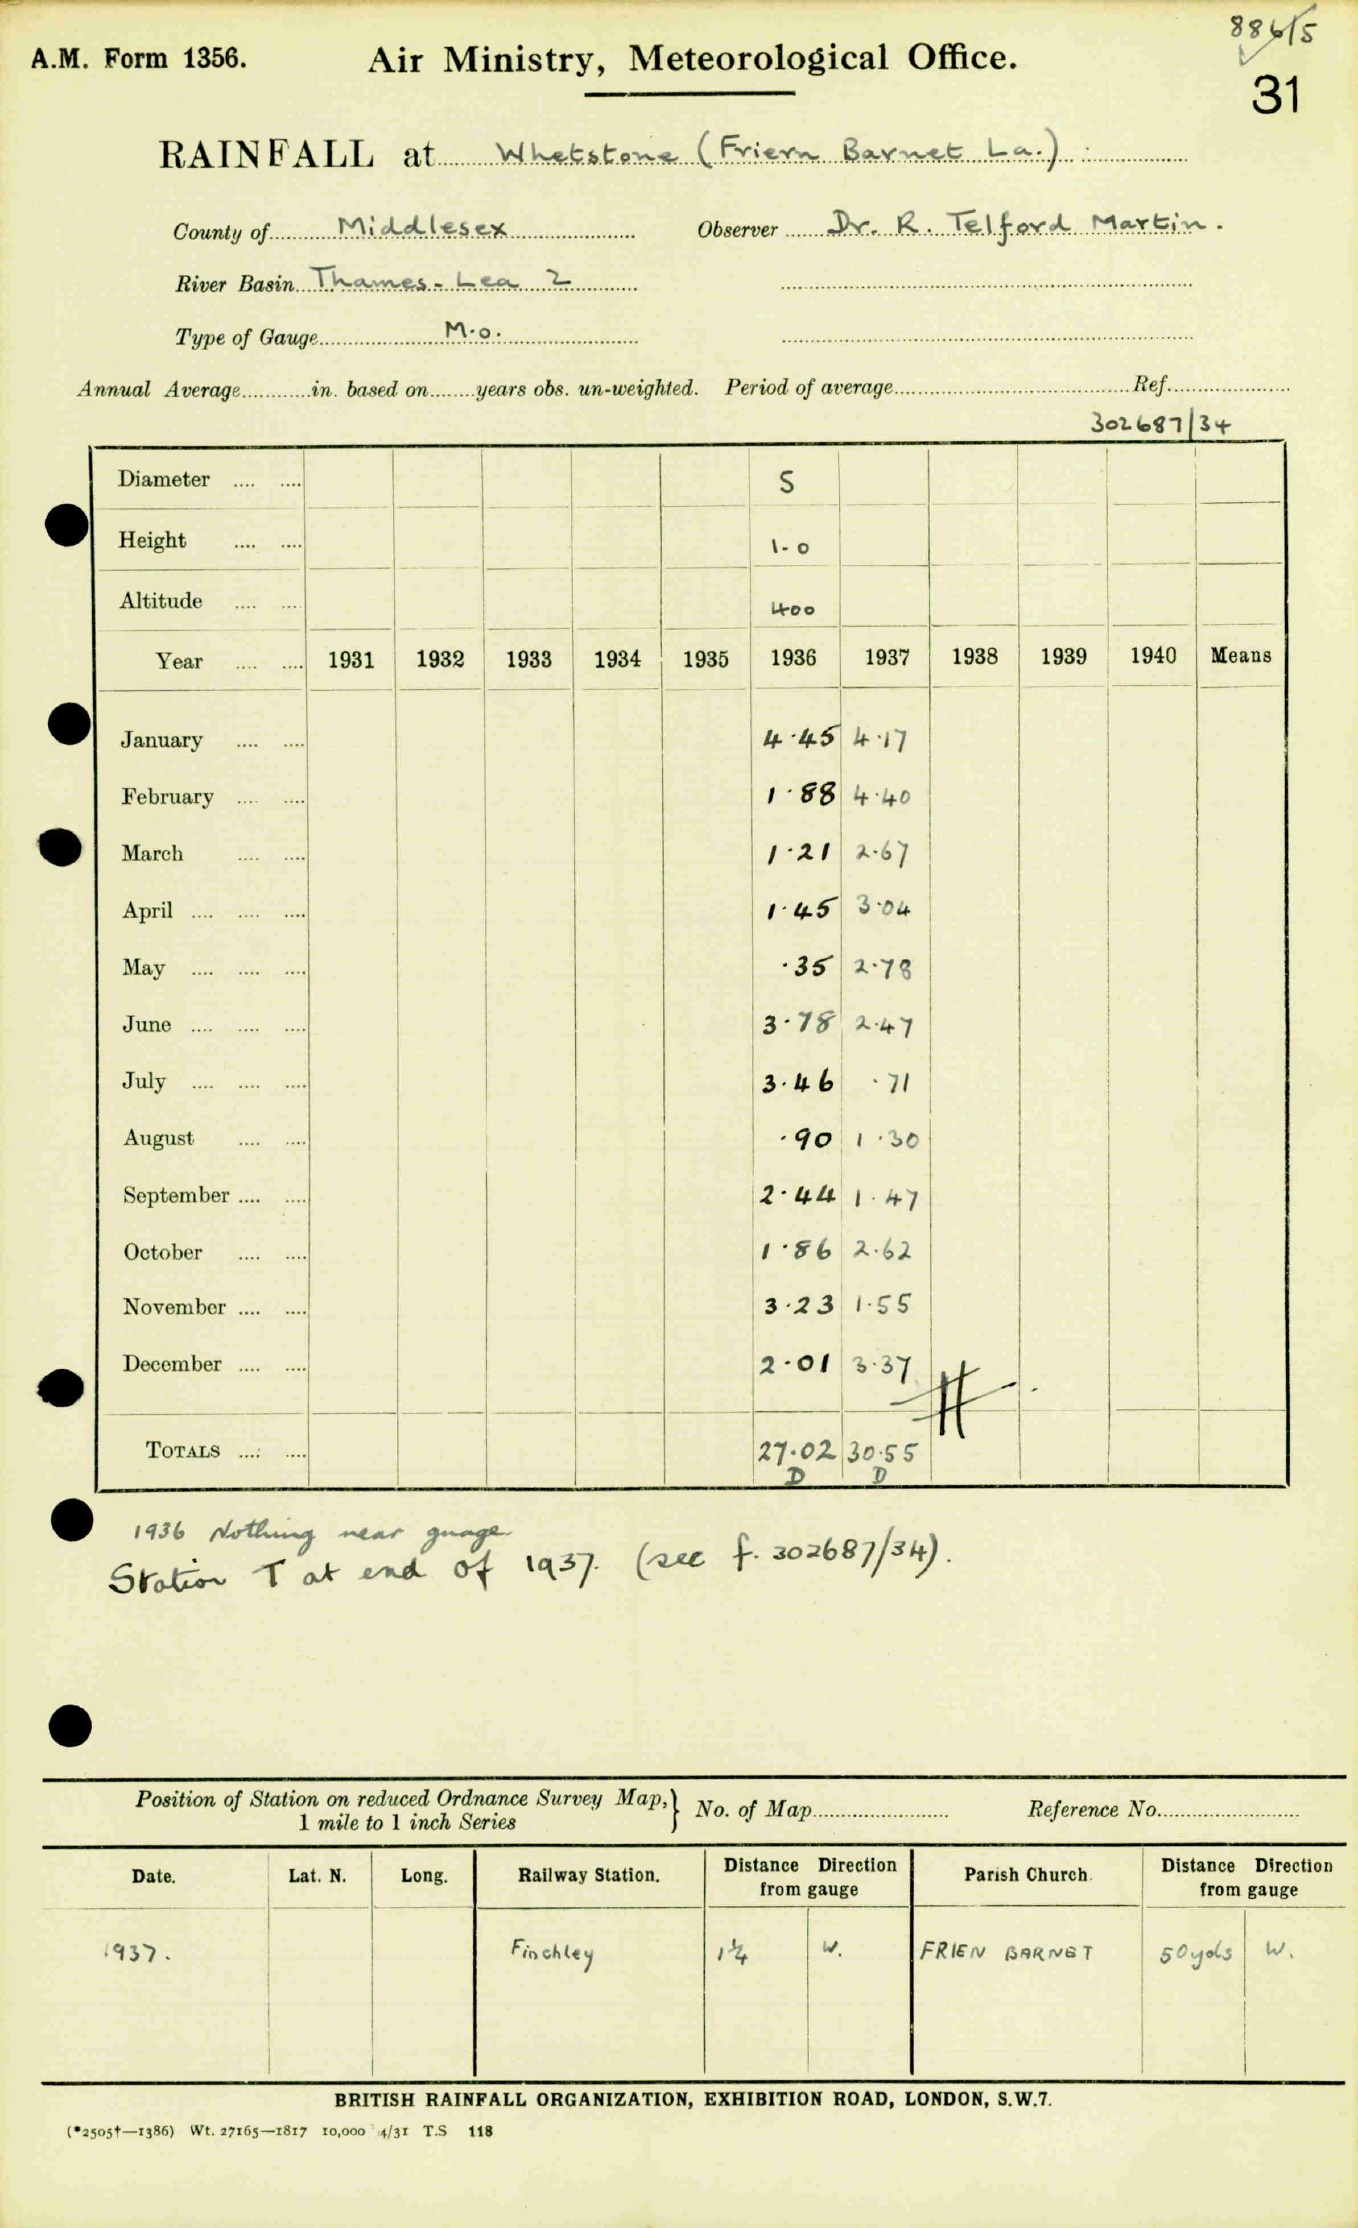 886/5
A.M. Form 1356. Air Ministry, Meteorological Office.
31
RAINFALL at Whetstone (Friern Barnet La.)
County of Middlesex Observer Dr. R. Telford Martin.
River Basin Thames - Lea 2
Type of Gauge M.O.
Annual Average in. based on years obs. un-weighted. Period of average Ref.
302687/34
Diameter 5
Height 1-0
Altitude 400
Year 1931 1932 1933 1934 1935 1936 1937 1938 1939 1940 Means
January 4.45 4.17
February 1.88 4.40
March 1.21 2.67
April 1.45 3.04
May .35 2.78
June 3.78 2.47
July 3.46 .71
August .90 1.30
September 2.44 1.47
October 1.86 2.62
November 3.23 1.55
December 2.01 3.37
TOTALS 27.02 30.55
D D
1936 Nothing near guage.
Station T at end of 1937. (see f. 302687/34).
Position of Station on reduced Ordnance Survey Map, } No. of Map Reference No.
1 mile to 1 inch Series
Date. Lat. N. Long. Railway Station. Distance Direction Parish Church. Distance Direction
from gauge from gauge
1937. Finchley 1¼ W. FRIEN BARNET 50yds W.
BRITISH RAINFALL ORGANIZATION, EXHIBITION ROAD, LONDON, S.W.7.
(*2505†—1386) Wt. 27165—1817 10,000 4/31 T.S 118